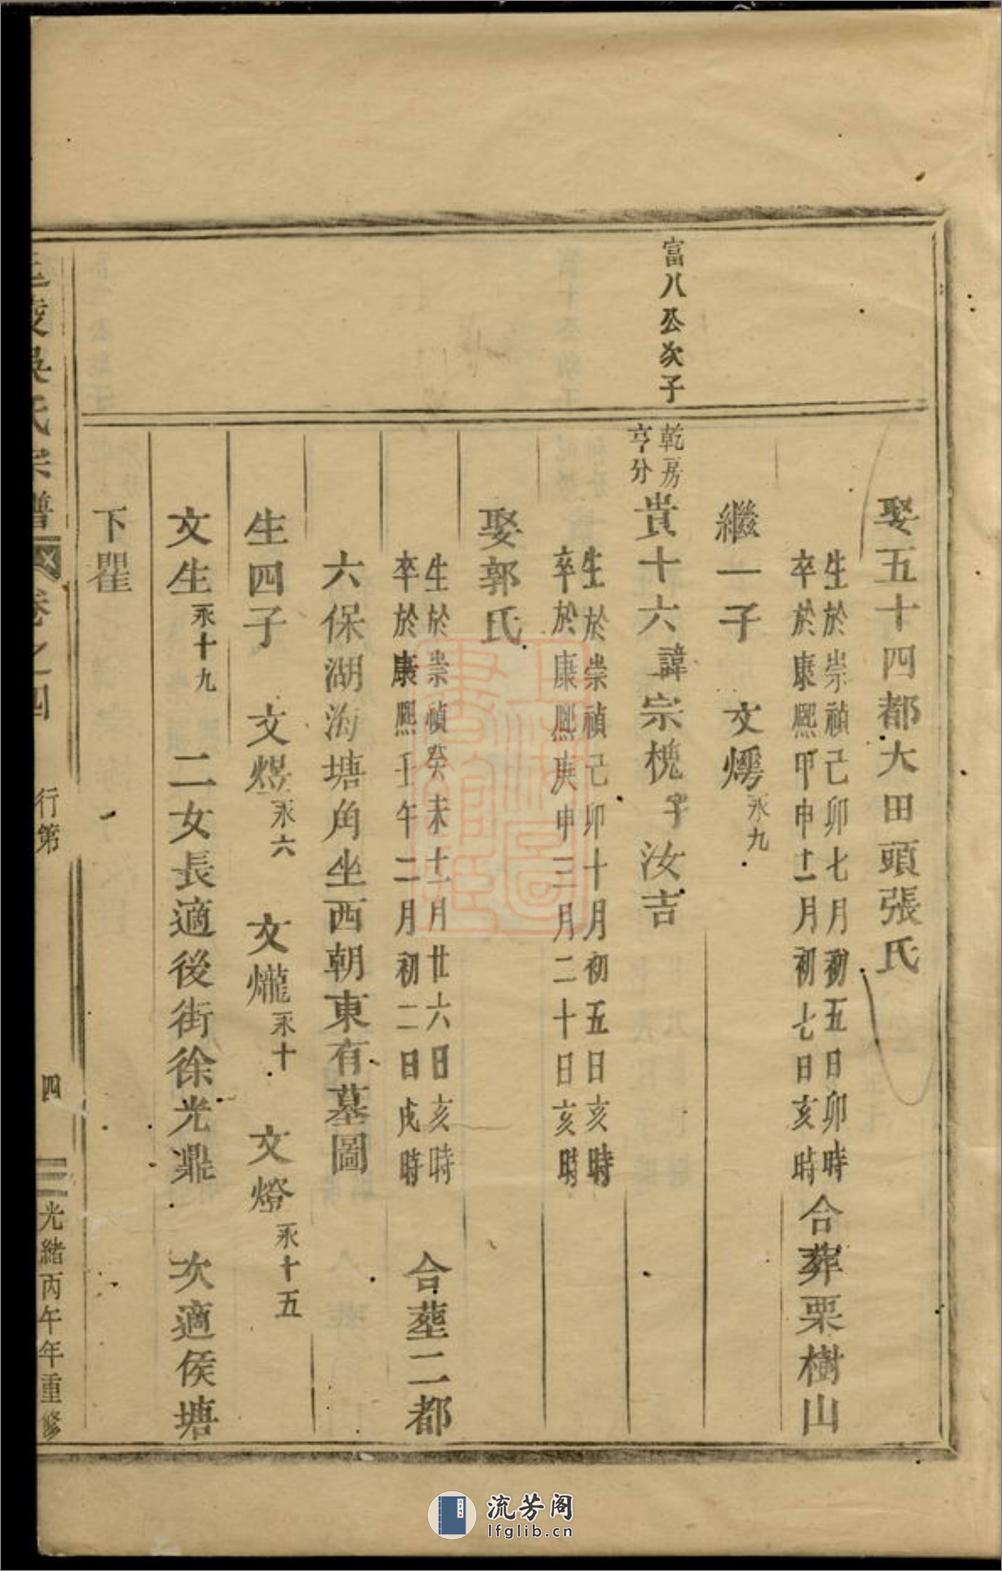 娶五十四都大田頭張氏
生於崇禎己卯七月初五日卯時
卒於康熙甲申十一月初七日亥時
合葬栗樹山
繼一子 文煖永九
富八公次子
乾房
亨分
貴十六諱宗槐字汝吉
生於崇禎己卯十月初五日亥時
卒於康熙庚申三月二十日亥時
娶郭氏
生於崇禎癸未十一月廿六日亥時
卒於康熙壬午二月初二日戌時
合塟二都
六保湖海塘角坐西朝東有墓圖
生四子 文煜永六 文爖永十 文燈永十五
文生永十九 二女長適後街徐光鼎 次適侯塘
下瞿
吳氏宗譜 卷之四 行第 四 光緒丙午年重修
流芳阁
lfglib.cn